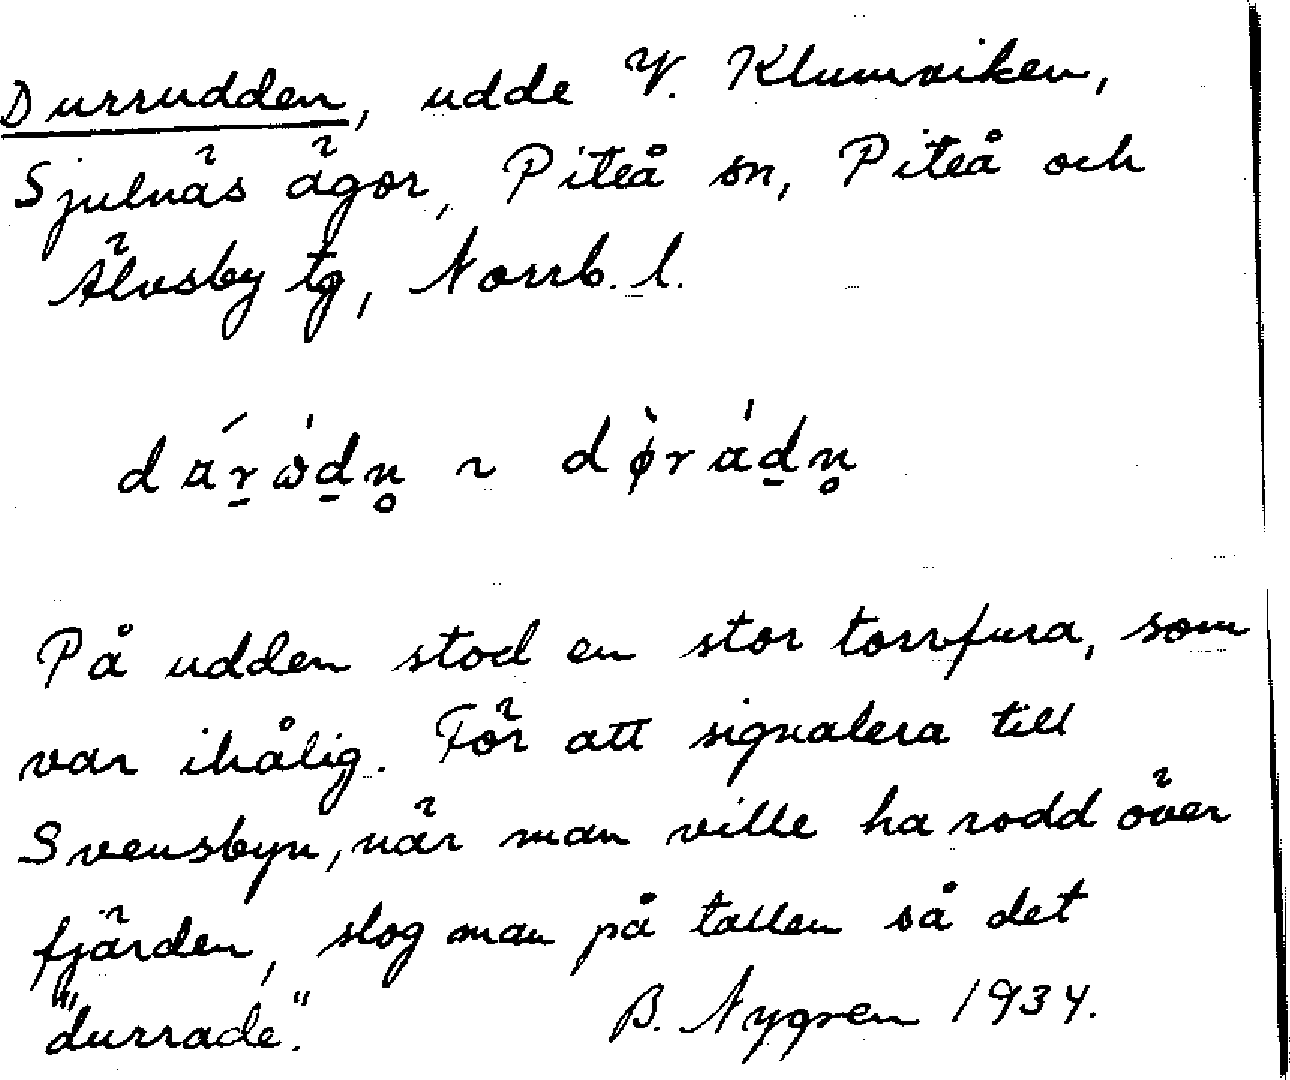 Durrudden, udde V. Klumviken,
Sjulnäs ägor, Piteå sn, Piteå och
Älvsby tg, Norrb. l.
På udden stod en stor torrfura, som
var ihålig. För att signalera till
Svensbyn, när man ville ha rodd över
fjärden, slog man på tallen så det
"durrade". B. Nygren 1934.